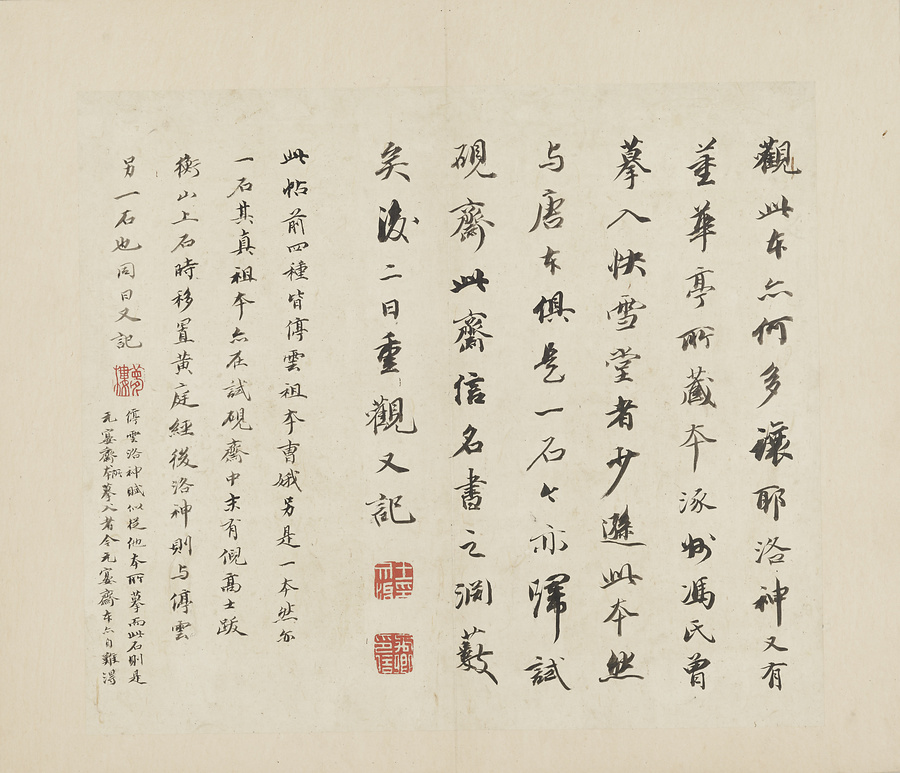 觀此本亦何多讓耶洛神又有
董華亭所藏本涿州馮氏曾
摹入快雪堂者少遜此本然
与唐本俱是一石今亦歸試
硯齋此齋信名書之淵藪
矣後二日重觀又記
此帖前四種皆停雲祖本曹娥另是一本然亦
一石其真祖本亦在試硯齋中末有倪高士跋
衡山上石時移置黃庭經後洛神則与停雲
另一石也同日又記
停雲洛神賦似從他本所摹而此石則是
元宴齋本所摹入者今元宴齋本亦自難得